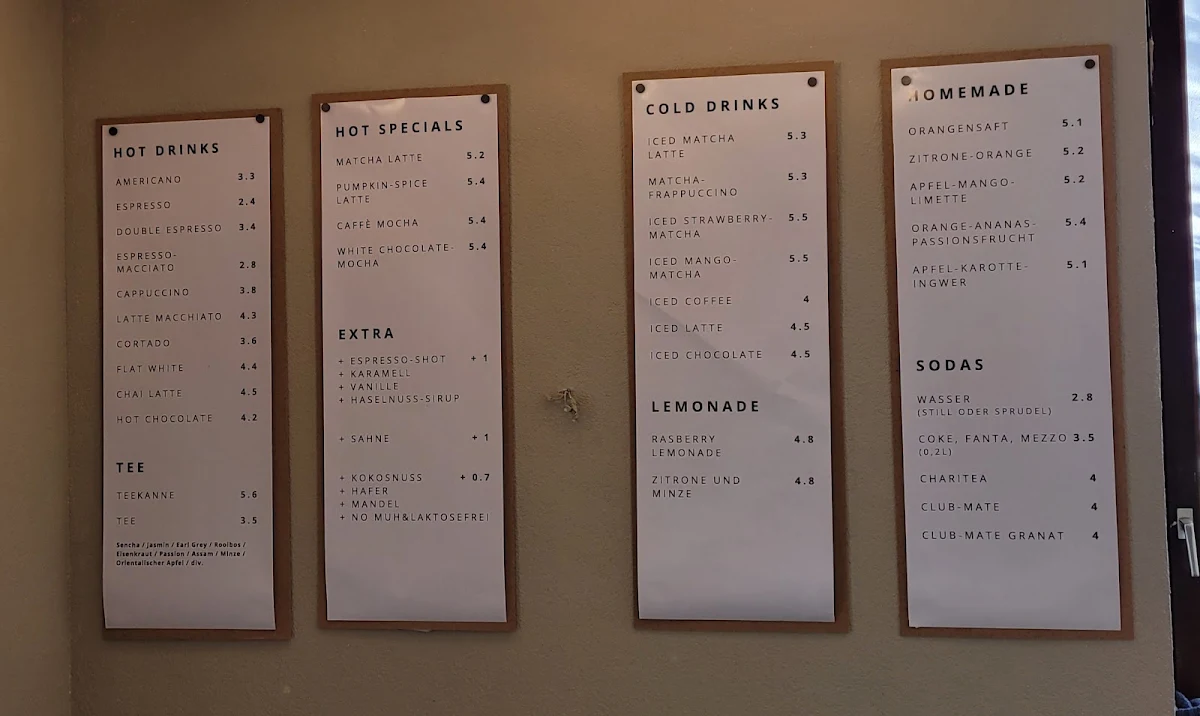 HOT DRINKS
AMERICANO 3.3
ESPRESSO 2.4
DOUBLE ESPRESSO 3.4
ESPRESSO-
MACCIATO 2.8
CAPPUCCINO 3.8
LATTE MACCHIATO 4.3
CORTADO 3.6
FLAT WHITE 4.4
CHAI LATTE 4.5
HOT CHOCOLATE 4.2
TEE
TEEKANNE 5.6
TEE 3.5
Sencha / Jasmin / Earl Grey / Rooibos /
Eisenkraut / Passion / Assam / Minze /
Orientalischer Apfel / div.
HOT SPECIALS
MATCHA LATTE 5.2
PUMPKIN-SPICE 5.4
LATTE
CAFFÈ MOCHA 5.4
WHITE CHOCOLATE- 5.4
MOCHA
EXTRA
+ ESPRESSO-SHOT + 1
+ KARAMELL
+ VANILLE
+ HASELNUSS-SIRUP
+ SAHNE + 1
+ KOKOSNUSS + 0.7
+ HAFER
+ MANDEL
+ NO MUH&LAKTOSEFREI
COLD DRINKS
ICED MATCHA 5.3
LATTE
MATCHA- 5.3
FRAPPUCCINO
ICED STRAWBERRY- 5.5
MATCHA
ICED MANGO- 5.5
MATCHA
ICED COFFEE 4
ICED LATTE 4.5
ICED CHOCOLATE 4.5
LEMONADE
RASBERRY 4.8
LEMONADE
ZITRONE UND 4.8
MINZE
HOMEMADE
ORANGENSAFT 5.1
ZITRONE-ORANGE 5.2
APFEL-MANGO- 5.2
LIMETTE
ORANGE-ANANAS- 5.4
PASSIONSFRUCHT
APFEL-KAROTTE- 5.1
INGWER
SODAS
WASSER 2.8
(STILL ODER SPRUDEL)
COKE, FANTA, MEZZO 3.5
(0,2L)
CHARITEA 4
CLUB-MATE 4
CLUB-MATE GRANAT 4